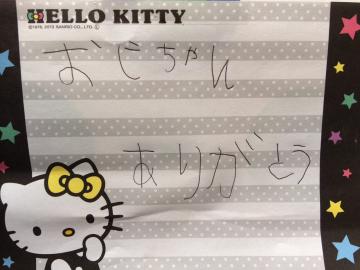 HELLO KITTY
©1976, 2013 SANRIO CO., LTD.
おじちゃん
ありがとう